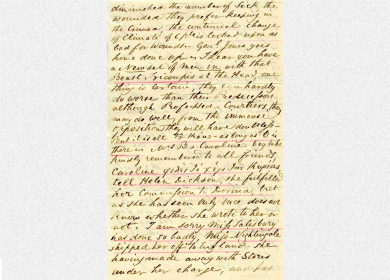 diminished the number of Sick, the
wounded they prefer keeping in
the Crimea, the continual change
of Climate of is looked upon as
bad for Wounds. Genl Jones goes
home done up. I hear you have
a New set of men in, with that
Beast at the Head, one
thing is certain, they hardly
do worse than their predecessors
although Professed Courtiers, they
may do well, from the immense
opposition they will have
But it is all as long as
there is Mrs B & Caroline beg to be
kindly remembered to all friends,
Caroline
tell Helen Dickson, she fulfilled
her Commission to but
as she has seen only once does not
know whether she wrote to her or
not. I am sorry Miss Salisbury
has done so badly, Miss Nightingale
shipped her off to England, she
having made away with Stores
under her charge, and has